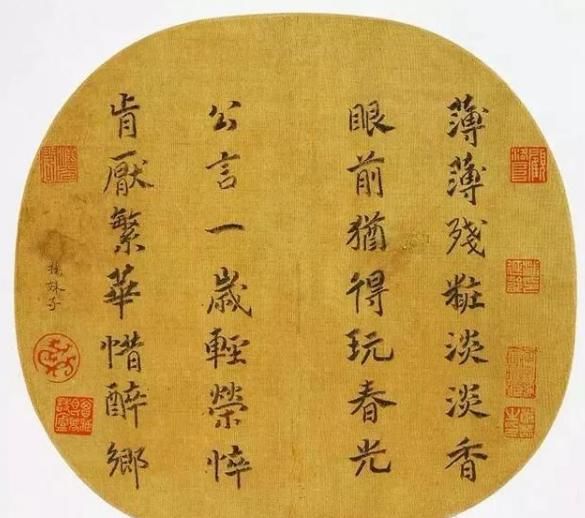 薄薄殘粧淡淡香
眼前猶得玩春光
公言一歳輕榮悴
肯厭繁華惜醉鄉
楊妹子